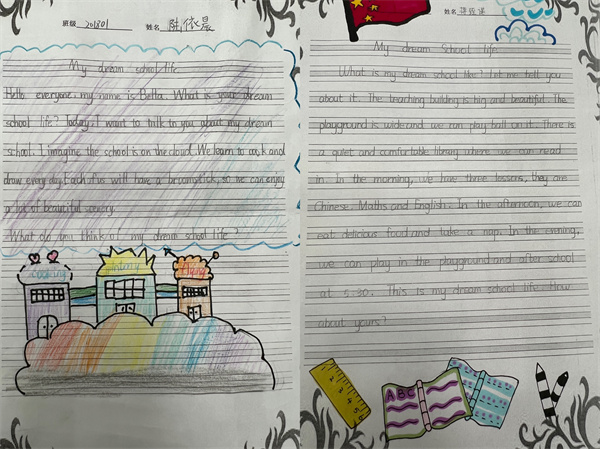 班级 201801 姓名
My dream school life.
Hello everyone, my name is Betta. What is your dream
school life? Today I want to talk to you about my dream
school. I imagine the school is on the cloud. We learn to cook and
draw every day. Each of us will have a so we can enjoy
a lot of beautiful scenery.
What do you think of my dream school life?
Cooking
Flying
姓名
My dream School life
What is my dream school like? Let me tell you
about it. The teaching building is big and beautiful. The
playground is wide and we can play ball on it. There is
a quiet and comfortable library where we can read
in. In the morning, we have three lessons, they are
Chinese, Maths and English. In the afternoon, we can
eat delicious food and take a nap. In the evening,
we can play in the playground and after school
at 5:30. This is my dream school life. How
about yours?
ABC